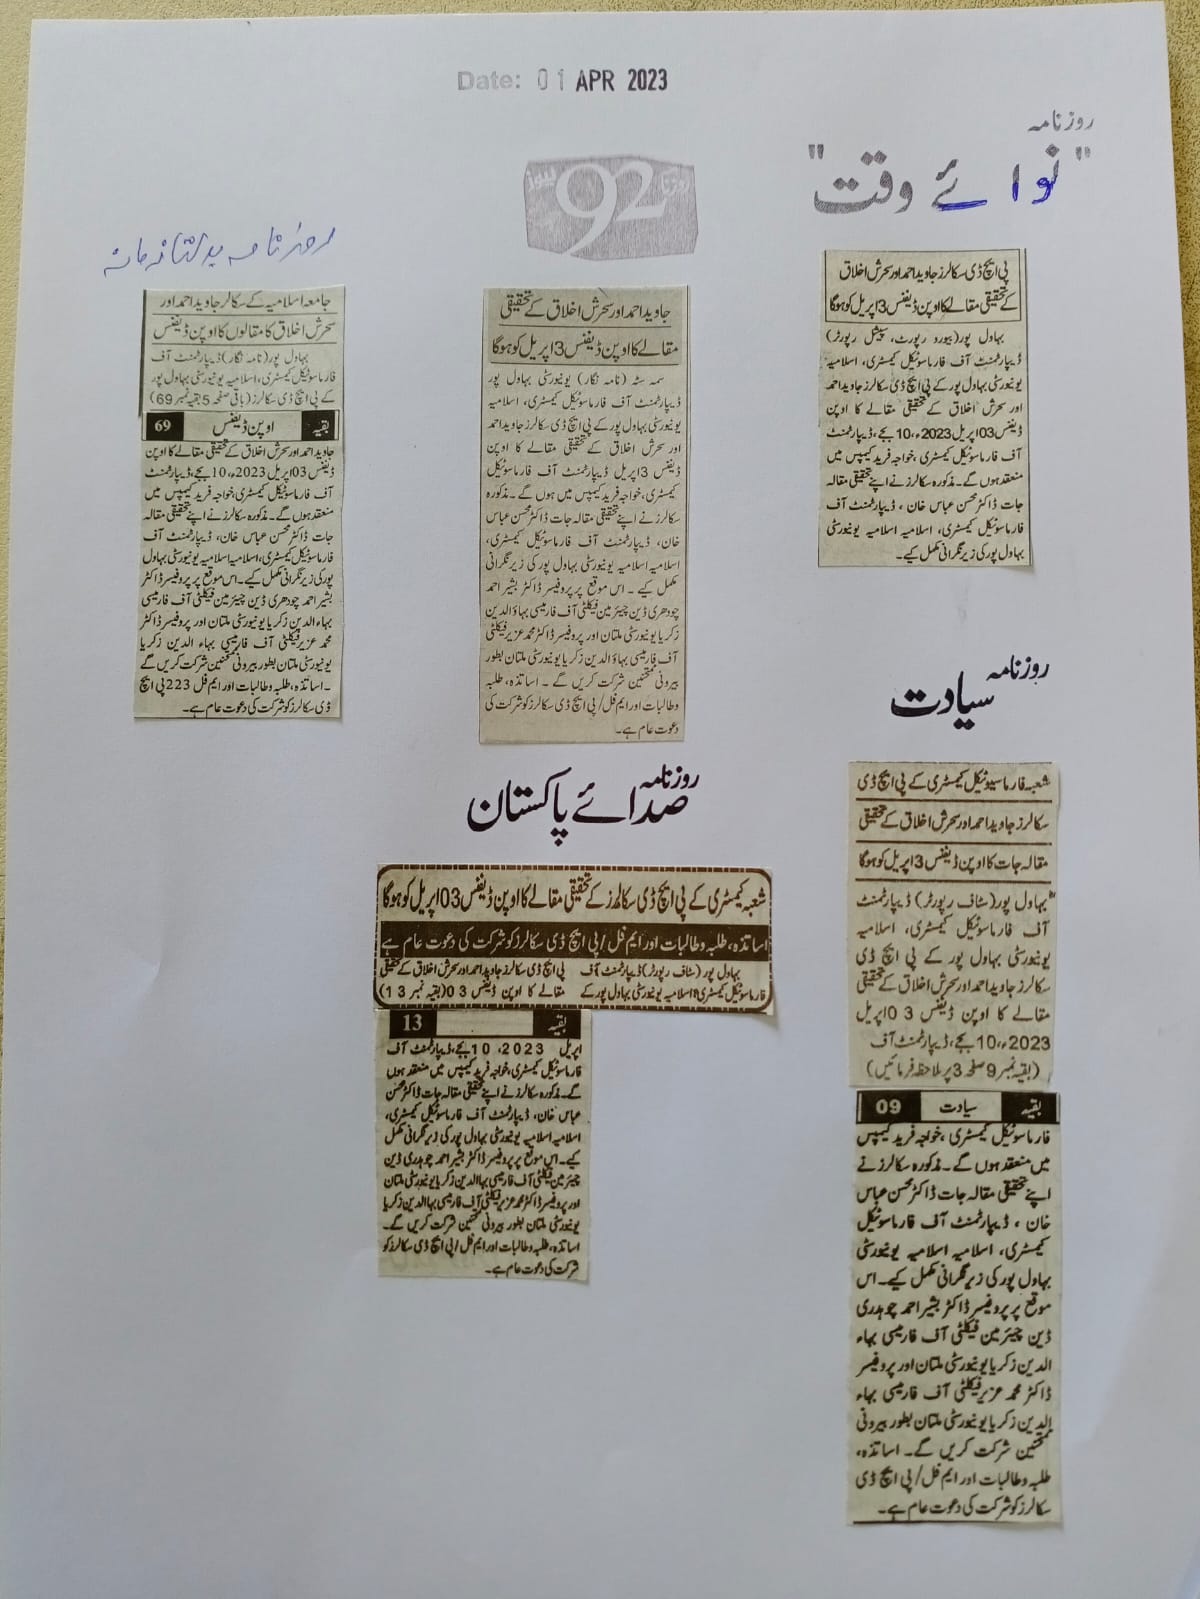 Date: 01 APR 2023
روزنامہ
"نوائے وقت"
پی ایچ ڈی سکالرز جاوید احمد اور سحرش اخلاق
کے تحقیقی مقالے کا اوپن ڈیفنس 3 اپریل کو ہوگا
بہاول پور (بیورو رپورٹ، سپیشل رپورٹر)
ڈیپارٹمنٹ آف فارماسوٹیکل کیمسٹری، اسلامیہ
یونیورسٹی بہاول پور کے پی ایچ ڈی سکالرز جاوید احمد
اور سحرش اخلاق کے تحقیقی مقالے کا اوپن
ڈیفنس 03 اپریل 2023ء، 10 بجے، ڈیپارٹمنٹ
آف فارماسوٹیکل کیمسٹری، خواجہ فرید کیمپس میں
منعقد ہوں گے۔ مذکورہ سکالرز نے اپنے تحقیقی مقالہ
جات ڈاکٹر محسن عباس خان، ڈیپارٹمنٹ آف
فارماسوٹیکل کیمسٹری، اسلامیہ اسلامیہ یونیورسٹی
بہاول پور کی زیر نگرانی مکمل کیے۔
روزنامہ 92 نیوز
جاوید احمد اور سحرش اخلاق کے تحقیقی
مقالے کا اوپن ڈیفنس 3 اپریل کو ہوگا
سمہ سٹہ (نامہ نگار) یونیورسٹی بہاول پور
ڈیپارٹمنٹ آف فارماسوٹیکل کیمسٹری، اسلامیہ
یونیورسٹی بہاول پور کے پی ایچ ڈی سکالرز جاوید احمد
اور سحرش اخلاق کے تحقیقی مقالے کا اوپن
ڈیفنس 3 اپریل ڈیپارٹمنٹ آف فارماسوٹیکل
کیمسٹری، خواجہ فرید کیمپس میں ہوں گے۔ مذکورہ
سکالرز نے اپنے تحقیقی مقالہ جات ڈاکٹر محسن عباس
خان، ڈیپارٹمنٹ آف فارماسوٹیکل کیمسٹری،
اسلامیہ اسلامیہ یونیورسٹی بہاول پور کی زیر نگرانی
مکمل کیے۔ اس موقع پر پروفیسر ڈاکٹر بشیر احمد
چودھری ڈین چیئرمین فیکلٹی آف فارمیسی بہاؤ الدین
زکریا یونیورسٹی ملتان اور پروفیسر ڈاکٹر محمد عزیر فیکلٹی
آف فارمیسی بہاؤ الدین زکریا یونیورسٹی ملتان بطور
بیرونی ممتحین شرکت کریں گے۔ اساتذہ، طلبہ
وطالبات اور ایم فل/پی ایچ ڈی سکالرز کو شرکت کی
دعوت عام ہے۔
جامعہ اسلامیہ کے سکالر جاوید احمد اور
سحرش اخلاق کا مقالوں کا اوپن ڈیفنس
بہاول پور (نامہ نگار) ڈیپارٹمنٹ آف
فارماسوٹیکل کیمسٹری، اسلامیہ یونیورسٹی بہاول پور
کے پی ایچ ڈی سکالرز (باقی صفحہ 5 بقیہ نمبر 69)
بقیہ اوپن ڈیفنس 69
جاوید احمد اور سحرش اخلاق کے تحقیقی مقالے کا اوپن
ڈیفنس 03 اپریل 2023ء، 10 بجے، ڈیپارٹمنٹ
آف فارماسوٹیکل کیمسٹری، خواجہ فرید کیمپس میں
منعقد ہوں گے۔ مذکورہ سکالرز نے اپنے تحقیقی مقالہ
جات ڈاکٹر محسن عباس خان، ڈیپارٹمنٹ آف
فارماسوٹیکل کیمسٹری، اسلامیہ اسلامیہ یونیورسٹی بہاول
پور کی زیر نگرانی مکمل کیے۔ اس موقع پر پروفیسر ڈاکٹر
بشیر احمد چودھری ڈین چیئرمین فیکلٹی آف فارمیسی
بہاء الدین زکریا یونیورسٹی ملتان اور پروفیسر ڈاکٹر
محمد عزیر فیکلٹی آف فارمیسی بہاء الدین زکریا
یونیورسٹی ملتان بطور بیرونی ممتحین شرکت کریں گے
۔ اساتذہ، طلبہ وطالبات اور ایم فل 223 پی ایچ
ڈی سکالرز کو شرکت کی دعوت عام ہے۔
روزنامہ
سیادت
شعبہ فارماسیوٹیکل کیمسٹری کے پی ایچ ڈی
سکالرز جاوید احمد اور سحرش اخلاق کے تحقیقی
مقالہ جات کا اوپن ڈیفنس 3 اپریل کو ہوگا
بہاول پور (سٹاف رپورٹر) ڈیپارٹمنٹ
آف فارماسوٹیکل کیمسٹری، اسلامیہ
یونیورسٹی بہاول پور کے پی ایچ ڈی
سکالرز جاوید احمد اور سحرش اخلاق کے تحقیقی
مقالے کا اوپن ڈیفنس 03 اپریل
2023ء، 10 بجے، ڈیپارٹمنٹ آف
(بقیہ نمبر 9 صفحہ 3 پر ملاحظہ فرمائیں)
بقیہ سیادت 09
فارماسوٹیکل کیمسٹری، خواجہ فرید کیمپس
میں منعقد ہوں گے۔ مذکورہ سکالرز نے
اپنے تحقیقی مقالہ جات ڈاکٹر محسن عباس
خان، ڈیپارٹمنٹ آف فارماسوٹیکل
کیمسٹری، اسلامیہ اسلامیہ یونیورسٹی
بہاول پور کی زیر نگرانی مکمل کیے۔ اس
موقع پر پروفیسر ڈاکٹر بشیر احمد چوہدری
ڈین چیئرمین فیکلٹی آف فارمیسی بہاء
الدین زکریا یونیورسٹی ملتان اور پروفیسر
ڈاکٹر محمد عزیر فیکلٹی آف فارمیسی بہاء
الدین زکریا یونیورسٹی ملتان بطور بیرونی
ممتحین شرکت کریں گے۔ اساتذہ،
طلبہ وطالبات اور ایم فل/پی ایچ ڈی
سکالرز کو شرکت کی دعوت عام ہے۔
روزنامہ
صدائے پاکستان
شعبہ کیمسٹری کے پی ایچ ڈی سکالرز کے تحقیقی مقالے کا اوپن ڈیفنس 03 اپریل کو ہوگا
اساتذہ، طلبہ وطالبات اور ایم فل/پی ایچ ڈی سکالرز کو شرکت کی دعوت عام ہے
بہاول پور (سٹاف رپورٹر) ڈیپارٹمنٹ آف
فارماسوٹیکل کیمسٹری، اسلامیہ یونیورسٹی بہاول پور کے
پی ایچ ڈی سکالرز جاوید احمد اور سحرش اخلاق کے تحقیقی
مقالے کا اوپن ڈیفنس 03 (بقیہ نمبر 13)
بقیہ 13
اپریل 2023، 10 بجے، ڈیپارٹمنٹ آف
فارماسوٹیکل کیمسٹری، خواجہ فرید کیمپس میں منعقد ہوں
گے۔ مذکورہ سکالرز نے اپنے تحقیقی مقالہ جات ڈاکٹر محسن
عباس خان، ڈیپارٹمنٹ آف فارماسوٹیکل کیمسٹری،
اسلامیہ اسلامیہ یونیورسٹی بہاول پور کی زیر نگرانی مکمل
کیے۔ اس موقع پر پروفیسر ڈاکٹر بشیر احمد چوہدری ڈین
چیئرمین فیکلٹی آف فارمیسی بہاالدین زکریا یونیورسٹی ملتان
اور پروفیسر ڈاکٹر محمد عزیر فیکلٹی آف فارمیسی بہاالدین زکریا
یونیورسٹی ملتان بطور بیرونی ممتحین شرکت کریں گے۔
اساتذہ، طلبہ وطالبات اور ایم فل/پی ایچ ڈی سکالرز کو
شرکت کی دعوت عام ہے۔